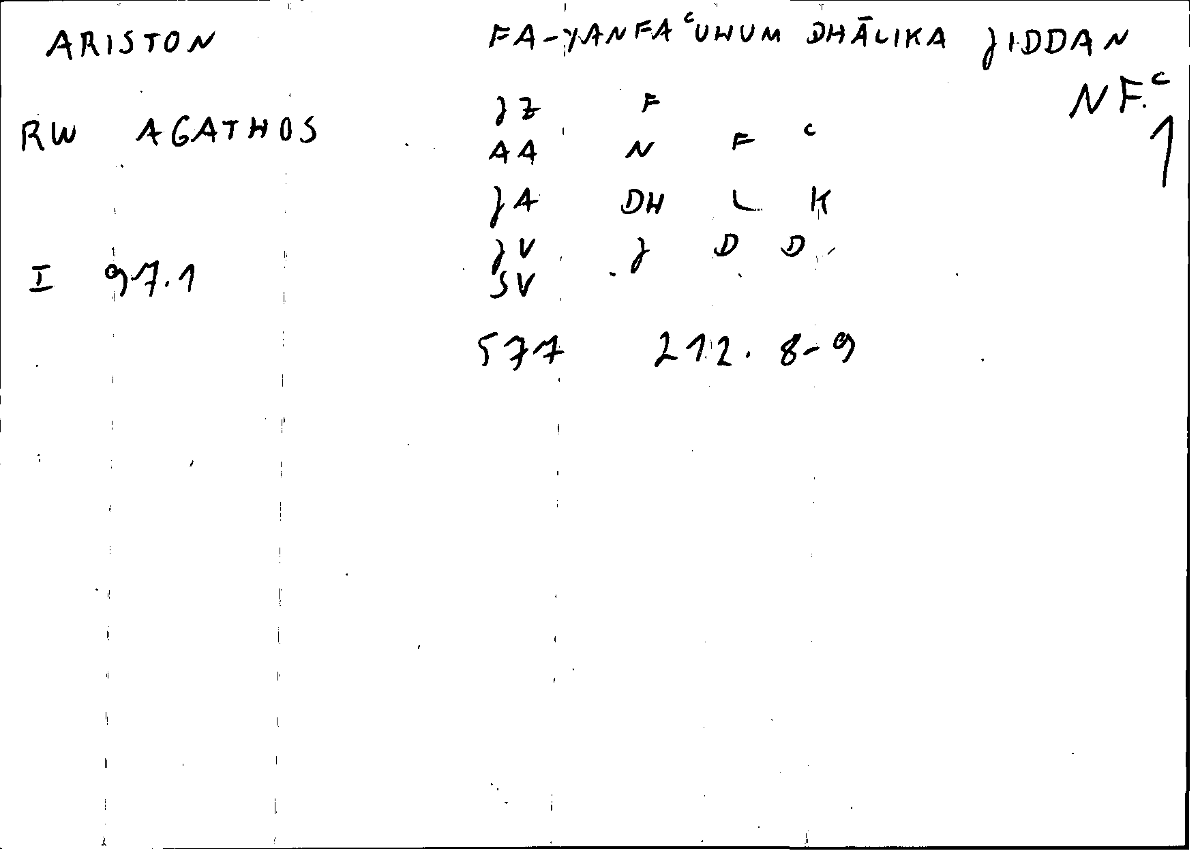 ARISTON FA-YANFAᶜUHUM DHĀLIKA JIDDAN
NF.ᶜ
RW AGATHOS JZ F
1
AA N F ᶜ
JA DH L K
JV J D D
I 97.1 SV
577 212. 8-9